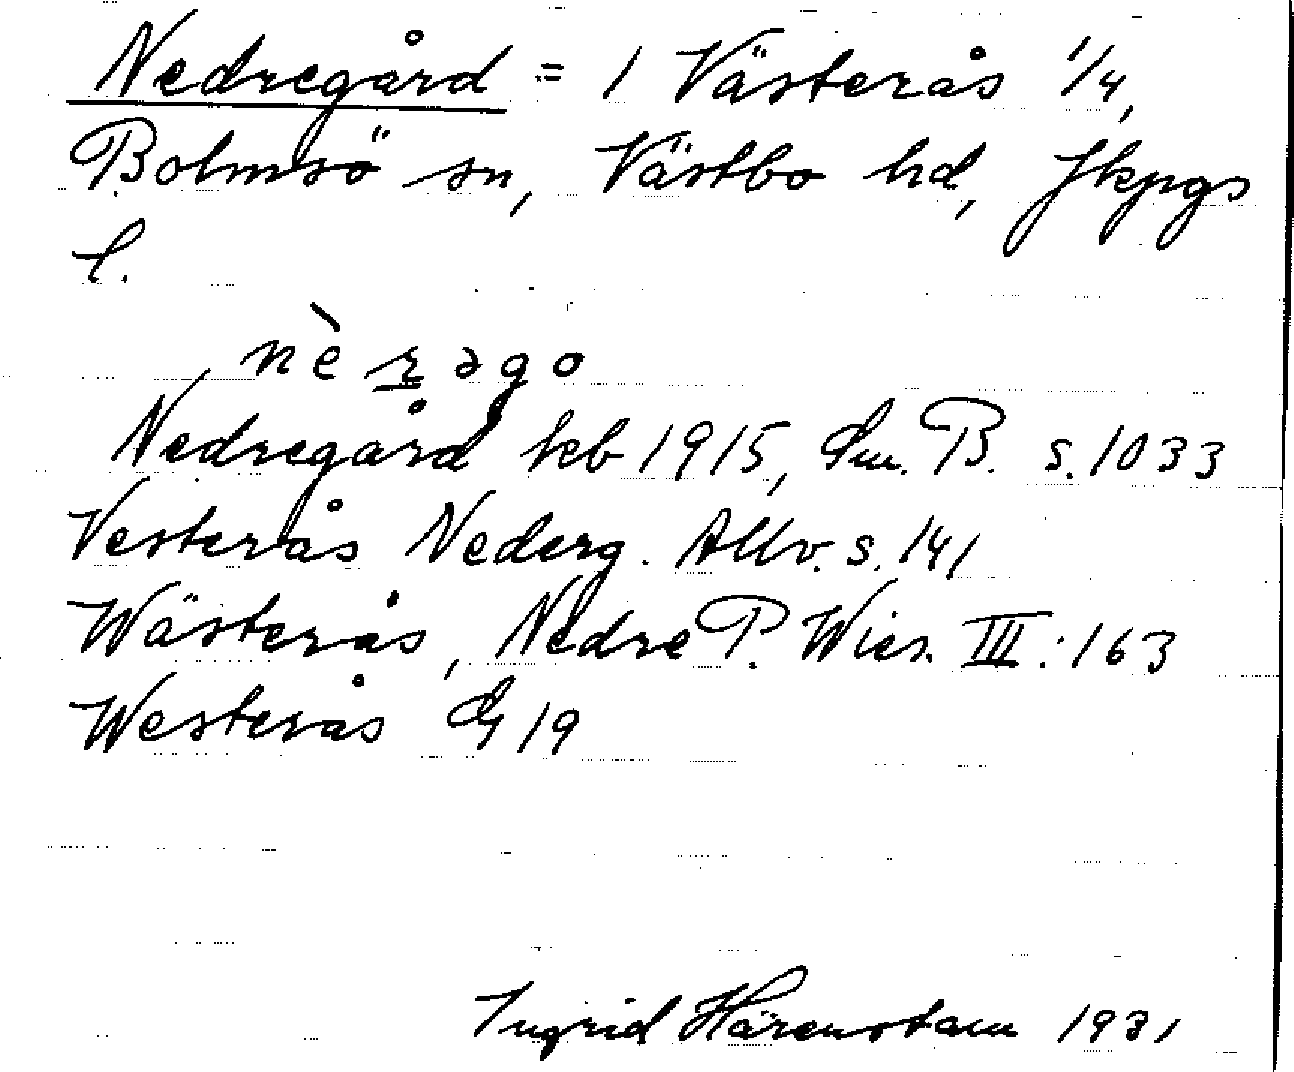 Nedregård = 1 Västerås 1/4,
Bolmsö sn, Västbo hd, Jkpgs
l.
nèr̲əgo
Nedregård kb 1915, B. s. 1033
Vesterås Nederg. Allv. s. 141
Wästerås, Nedre P. Wies. III: 163
Westerås 19
Ingrid Härenstam 1931